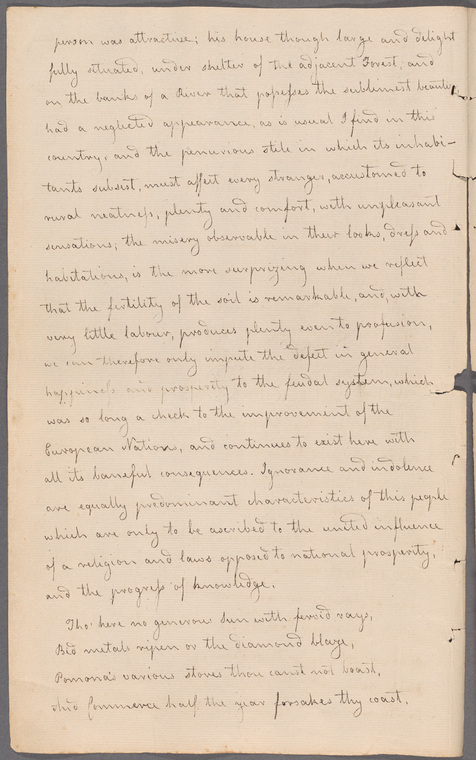 person was attractive; his house though large and delight
fully situated, under shelter of the adjacent Forest, and
on the banks of a River that possesses the sublimest beauty
had a neglected appearance, as is usual I find in this
country, and the penurious stile in which its inhabi-
tants subsist, must affect every stranger, accustomed to
rural neatness, plenty and comfort, with unpleasant
sensations; the misery observable in their looks, dress and
habitations, is the more surprizing when we reflect
that the fertility of the soil is remarkable, and, with
very little labour, produces plenty even to profusion,
we can therefore only impute the defect in general
happiness and prosperity to the feudal system, which
was so long a check to the improvement of the
European Nations, and continues to exist here with
all its baneful consequences. Ignorance and indolence
are equally predominant characteristics of this people
which are only to be ascribed to the united influence
of a religion and laws opposed to national prosperity,
and the progress of knowledge.
Tho' here no generous Sun with fervid rays,
Bid metals ripen or the diamond blaze,
Pomona's various stores thou canst not boast,
And Commerce half the year forsakes thy coast,